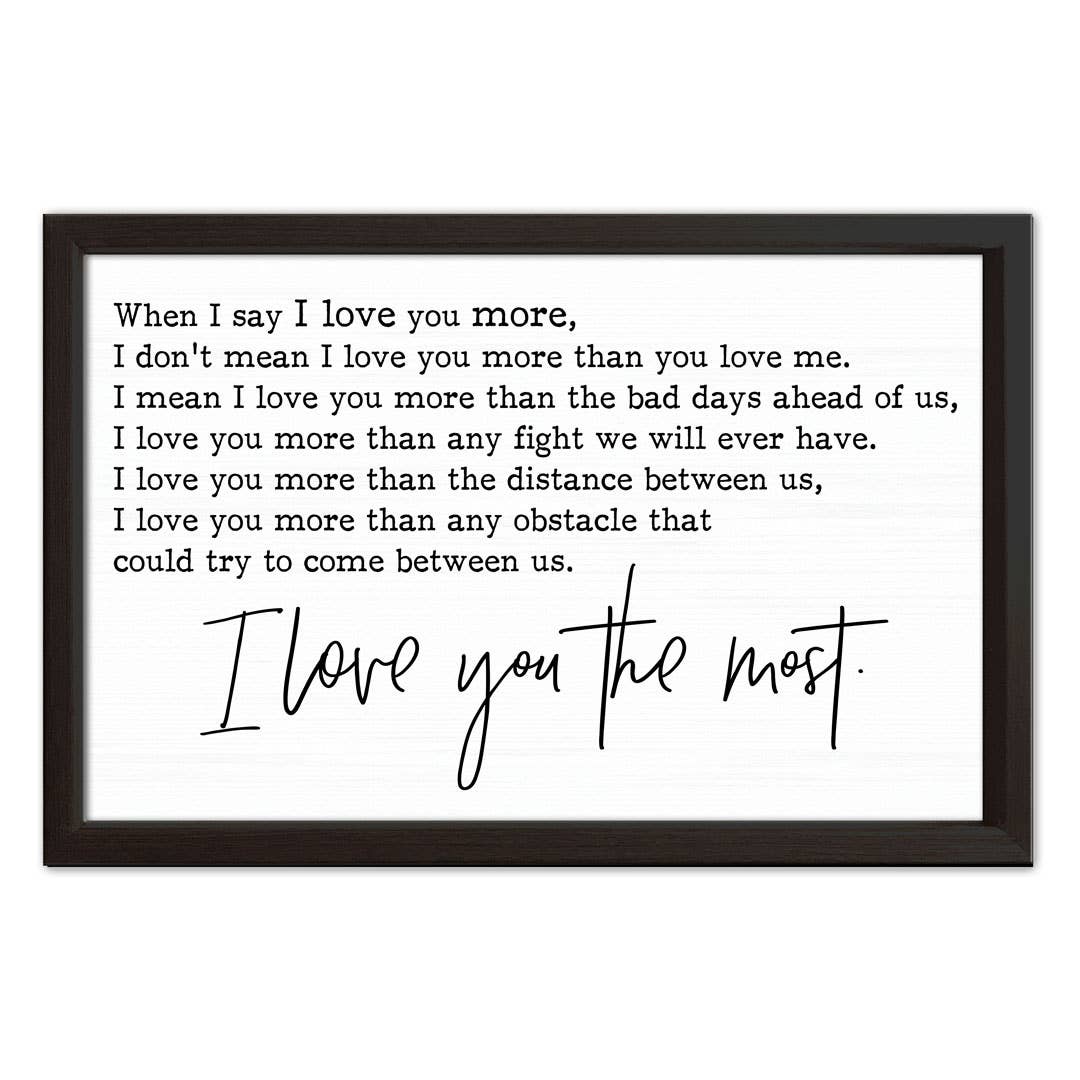 When I say I love you more,
I don't mean I love you more than you love me.
I mean I love you more than the bad days ahead of us,
I love you more than any fight we will ever have.
I love you more than the distance between us,
I love you more than any obstacle that
could try to come between us.
I love you the most.